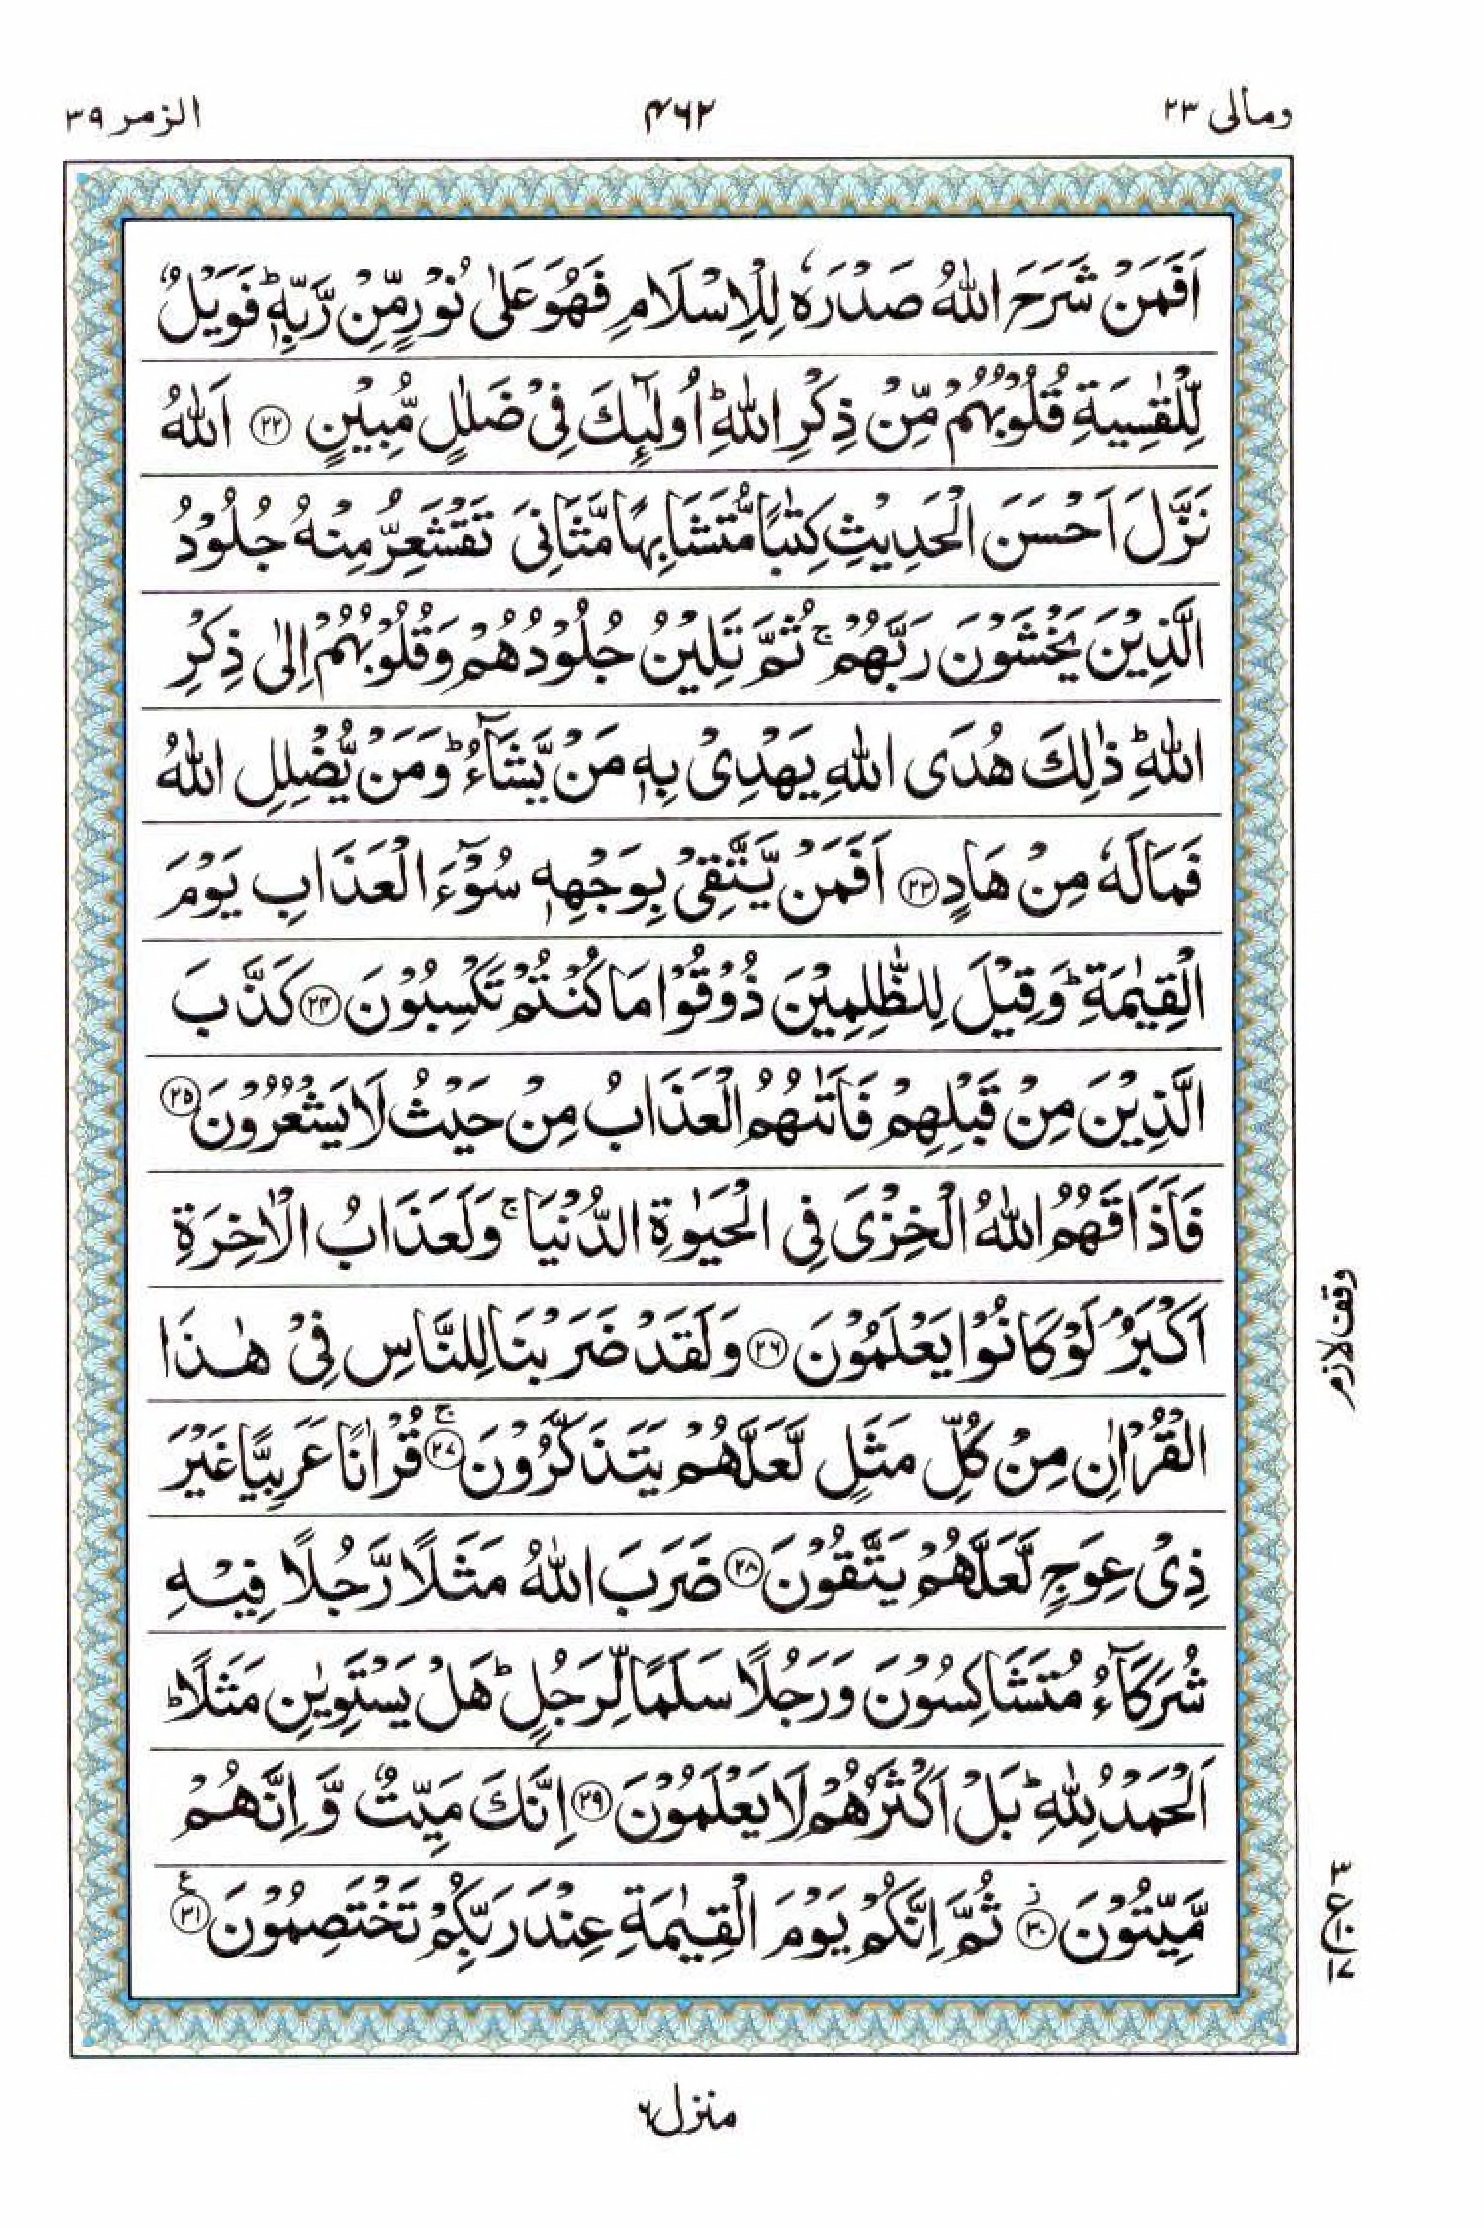 ومالی ۲۳
۴۶۲
الزمر ۳۹
اَفَمَنْ شَرَحَ اللّٰهُ صَدْرَهٗ لِلْاِسْلَامِ فَهُوَ عَلٰى نُوْرٍ مِّنْ رَّبِّهٖ ؕ فَوَيْلٌ
لِّلْقٰسِيَةِ قُلُوْبُهُمْ مِّنْ ذِكْرِ اللّٰهِ ؕ اُولٰٓئِكَ فِىْ ضَلٰلٍ مُّبِيْنٍ ﴿۲۲﴾ اَللّٰهُ
نَزَّلَ اَحْسَنَ الْحَدِيْثِ كِتٰبًا مُّتَشَابِهًا مَّثَانِىَ تَقْشَعِرُّ مِنْهُ جُلُوْدُ
الَّذِيْنَ يَخْشَوْنَ رَبَّهُمْ ۚ ثُمَّ تَلِيْنُ جُلُوْدُهُمْ وَقُلُوْبُهُمْ اِلٰى ذِكْرِ
اللّٰهِ ؕ ذٰلِكَ هُدَى اللّٰهِ يَهْدِىْ بِهٖ مَنْ يَّشَآءُ ؕ وَمَنْ يُّضْلِلِ اللّٰهُ
فَمَا لَهٗ مِنْ هَادٍ ﴿۲۳﴾ اَفَمَنْ يَّتَّقِىْ بِوَجْهِهٖ سُوْٓءَ الْعَذَابِ يَوْمَ
الْقِيٰمَةِ ؕ وَقِيْلَ لِلظّٰلِمِيْنَ ذُوْقُوْا مَا كُنْتُمْ تَكْسِبُوْنَ ﴿۲۴﴾ كَذَّبَ
الَّذِيْنَ مِنْ قَبْلِهِمْ فَاَتٰٮهُمُ الْعَذَابُ مِنْ حَيْثُ لَا يَشْعُرُوْنَ ﴿۲۵﴾
فَاَذَاقَهُمُ اللّٰهُ الْخِزْىَ فِى الْحَيٰوةِ الدُّنْيَا ۚ وَلَعَذَابُ الْاٰخِرَةِ
اَكْبَرُ ۘ لَوْ كَانُوْا يَعْلَمُوْنَ ﴿۲۶﴾ وَلَقَدْ ضَرَبْنَا لِلنَّاسِ فِىْ هٰذَا
الْقُرْاٰنِ مِنْ كُلِّ مَثَلٍ لَّعَلَّهُمْ يَتَذَكَّرُوْنَ ۚ﴿۲۷﴾ قُرْاٰنًا عَرَبِيًّا غَيْرَ
ذِىْ عِوَجٍ لَّعَلَّهُمْ يَتَّقُوْنَ ﴿۲۸﴾ ضَرَبَ اللّٰهُ مَثَلًا رَّجُلًا فِيْهِ
شُرَكَآءُ مُتَشَاكِسُوْنَ وَرَجُلًا سَلَمًا لِّرَجُلٍ ؕ هَلْ يَسْتَوِيٰنِ مَثَلًا ؕ
اَلْحَمْدُ لِلّٰهِ ؕ بَلْ اَكْثَرُهُمْ لَا يَعْلَمُوْنَ ﴿۲۹﴾ اِنَّكَ مَيِّتٌ وَّ اِنَّهُمْ
مَّيِّتُوْنَ ؗ﴿۳۰﴾ ثُمَّ اِنَّكُمْ يَوْمَ الْقِيٰمَةِ عِنْدَ رَبِّكُمْ تَخْتَصِمُوْنَ ﴿۳۱﴾ ع
وقف لازم
۳
ع ۱۰
۱۷
منزل ۶